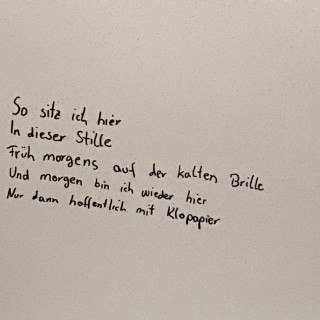 So sitz ich hier
In dieser Stille
Früh morgens auf der kalten Brille
Und morgen bin ich wieder hier
Nur dann hoffentlich mit Klopapier